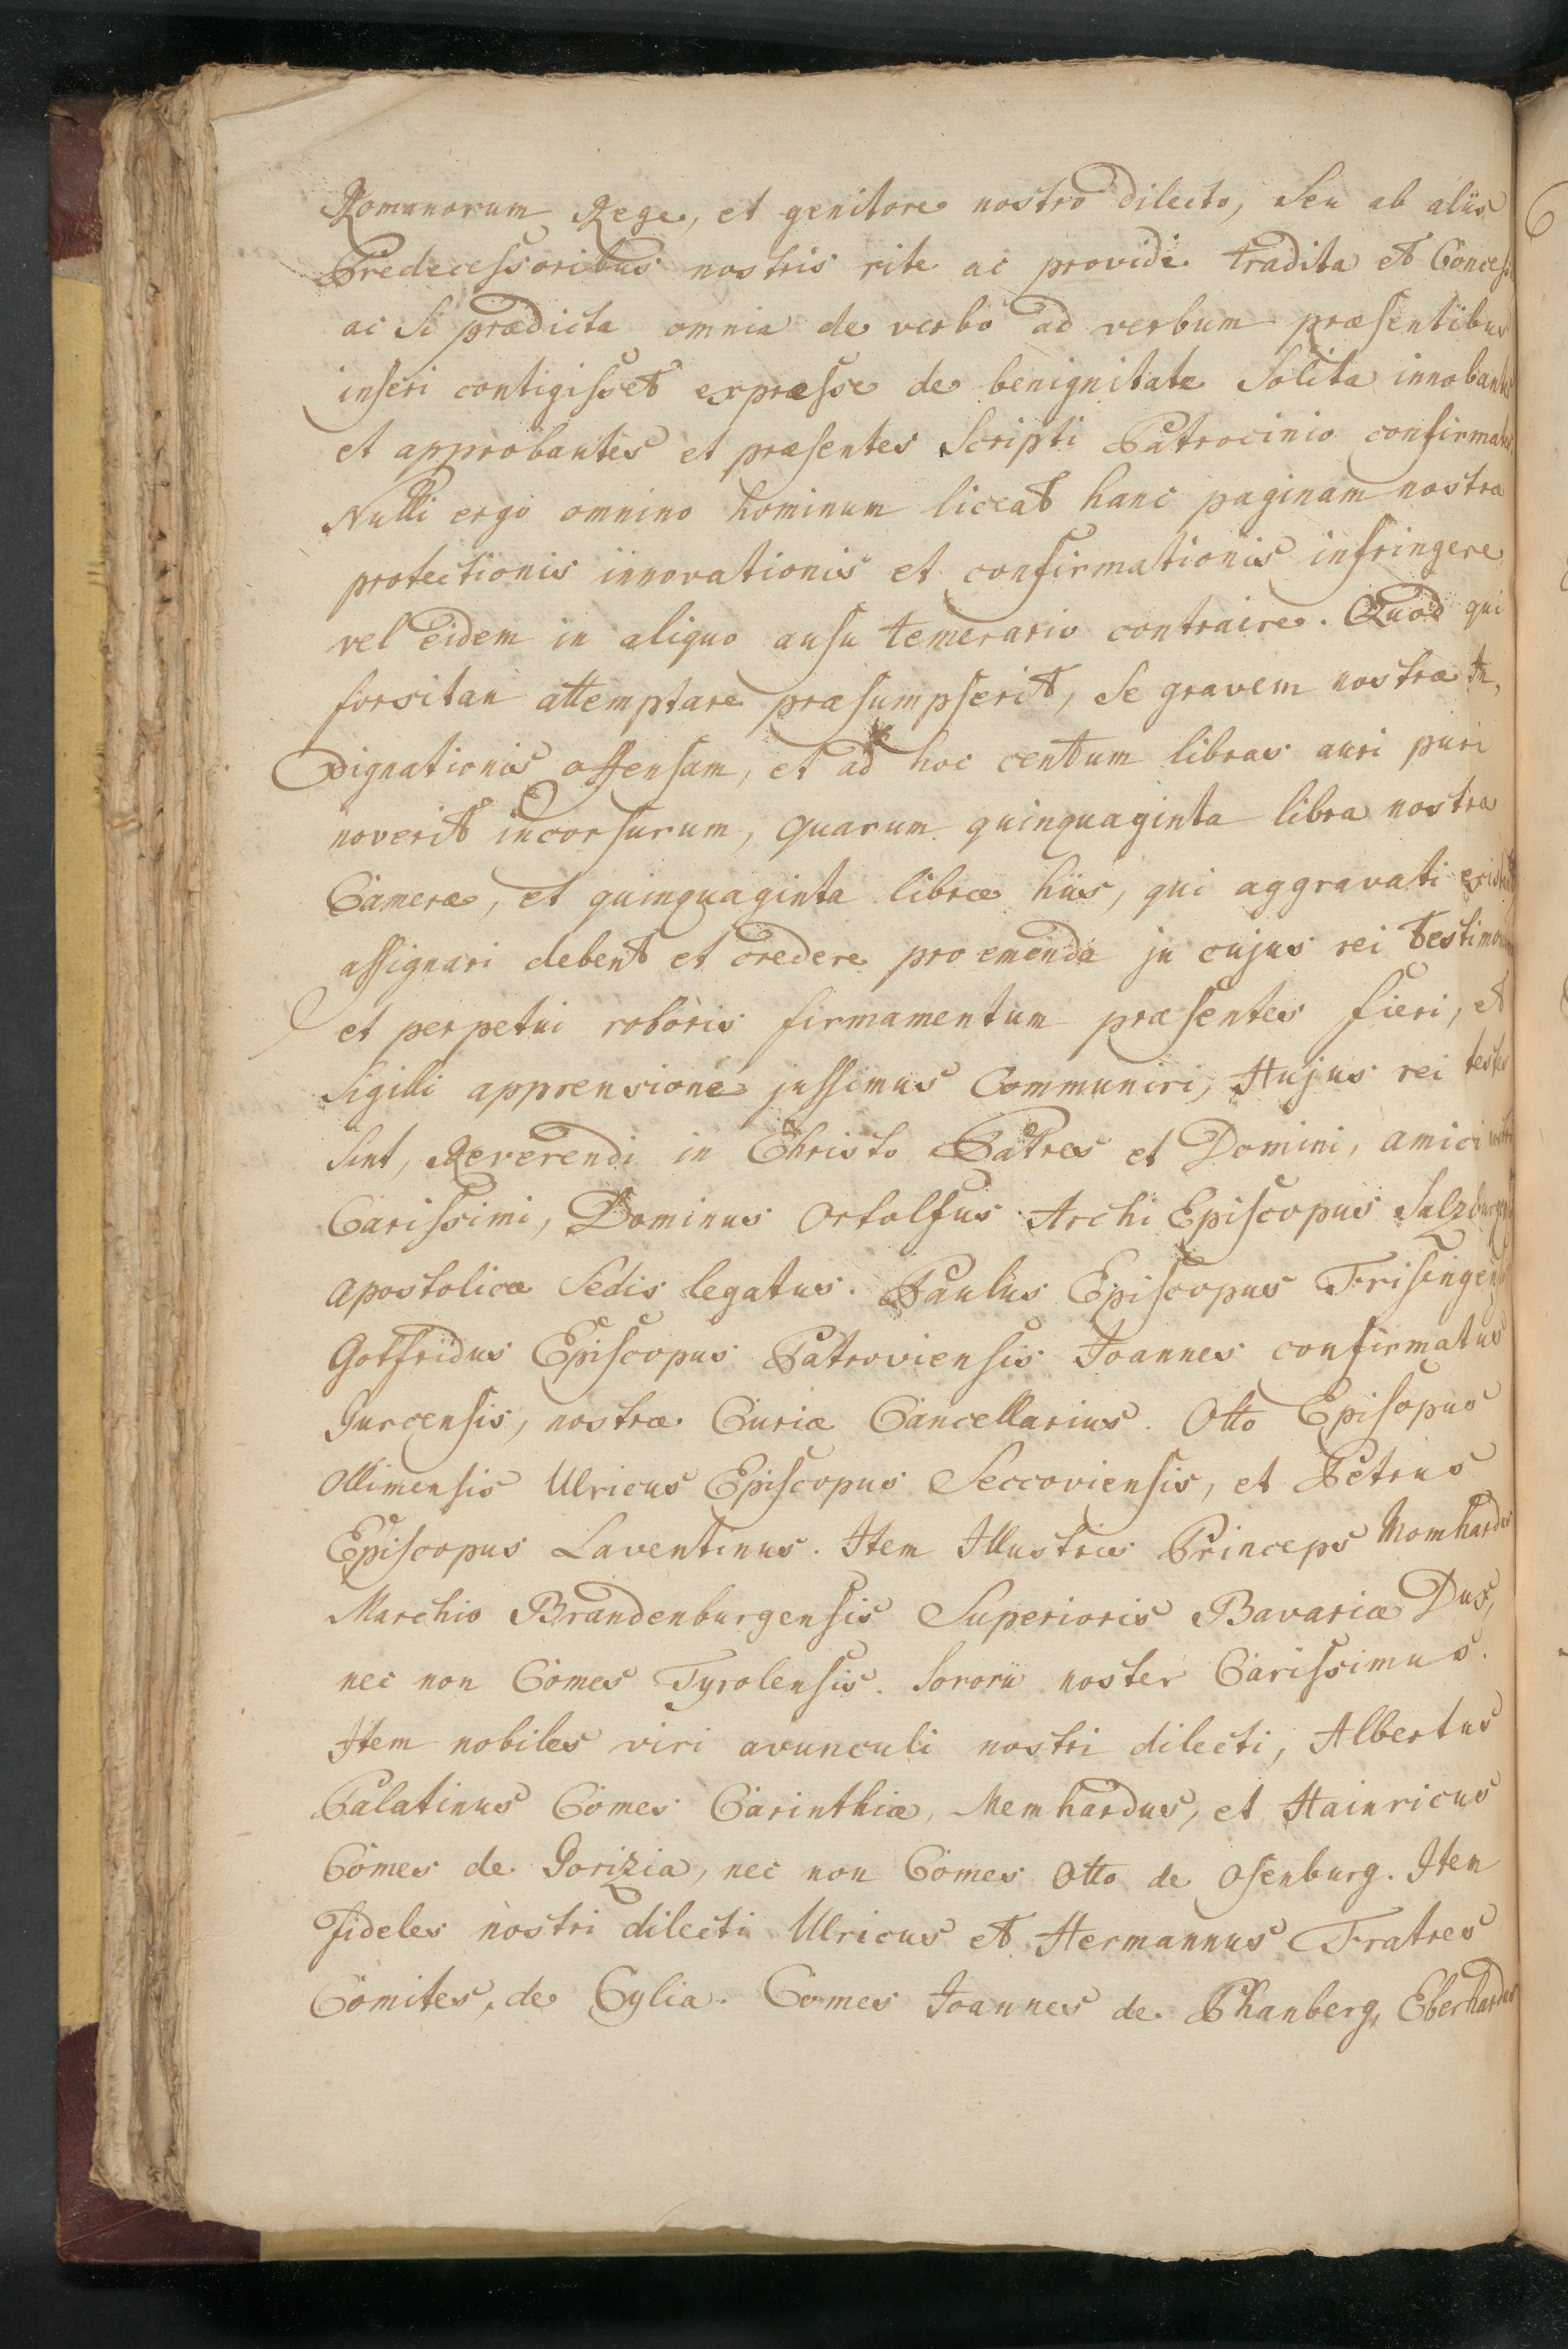 Romanorum Rege, et genitore nostro dilecto, Seu ab aliis
Predecessoribus nostris rite ac providè tradita et
ac Si prædicta omnia de verbo ad verbum præsentibus
inseri contigisset expræsse de benignitate Solita
et approbantes et præsentes Scripti Patrocinio
Nulli ergo omnino hominum liceat hanc paginam nostra
protectionis innovationis et confirmationis infringere
vel eidem in aliquo ausu temerario contraire. Quod qui
forsitan attemptare præsumpserit, Se gravem nostræ In,
dignationis offensam, et ad hoc centum libras auri puri
noverit incorsurum, quarum quinquaginta libra nostræ
Cameræ, et quinquaginta libræ hiis, qui aggravati
assignari debent et credere pro emenda ju cujus rei
et perpetui roboris firmamentum præsentes fieri, et
Sigilli apprensione jussimus Communiri, Hujus rei testes
Sint, Reverendi in Christo Patres et Domini, amici
Carissimi, Dominus Ortolfus Archi Episcopus
apostolicæ Sedis legatus. Paulus Episcopus
Gotfridus Episcopus Patroviensis Joannes confirmatus
Gurcensis, nostræ Curiæ Cancellarius. Otto Episopus
Ollimensis Ulricus Episcopus Seccoviensis, et Petrus
Episcopus Laventinus. Item Illustris Princeps Momhardus
Marchio Brandenburgensis Superioris Bavariæ Dux,
nec non Comes Tyrolensis. Sororii noster Carissimus.
Item nobiles viri avunculi nostri dilecti, Albertus
Palatinus Comes Carinthiæ, Memhardus, et Hainricus
Comes de Gorizia, nec non Comes Otto de Osenburg. Item
Fideles nostri dilecti Ulricus et Hermannus Fratres
Comites, de Cylia. Comes Joannes de Phanberg, Eberhardus